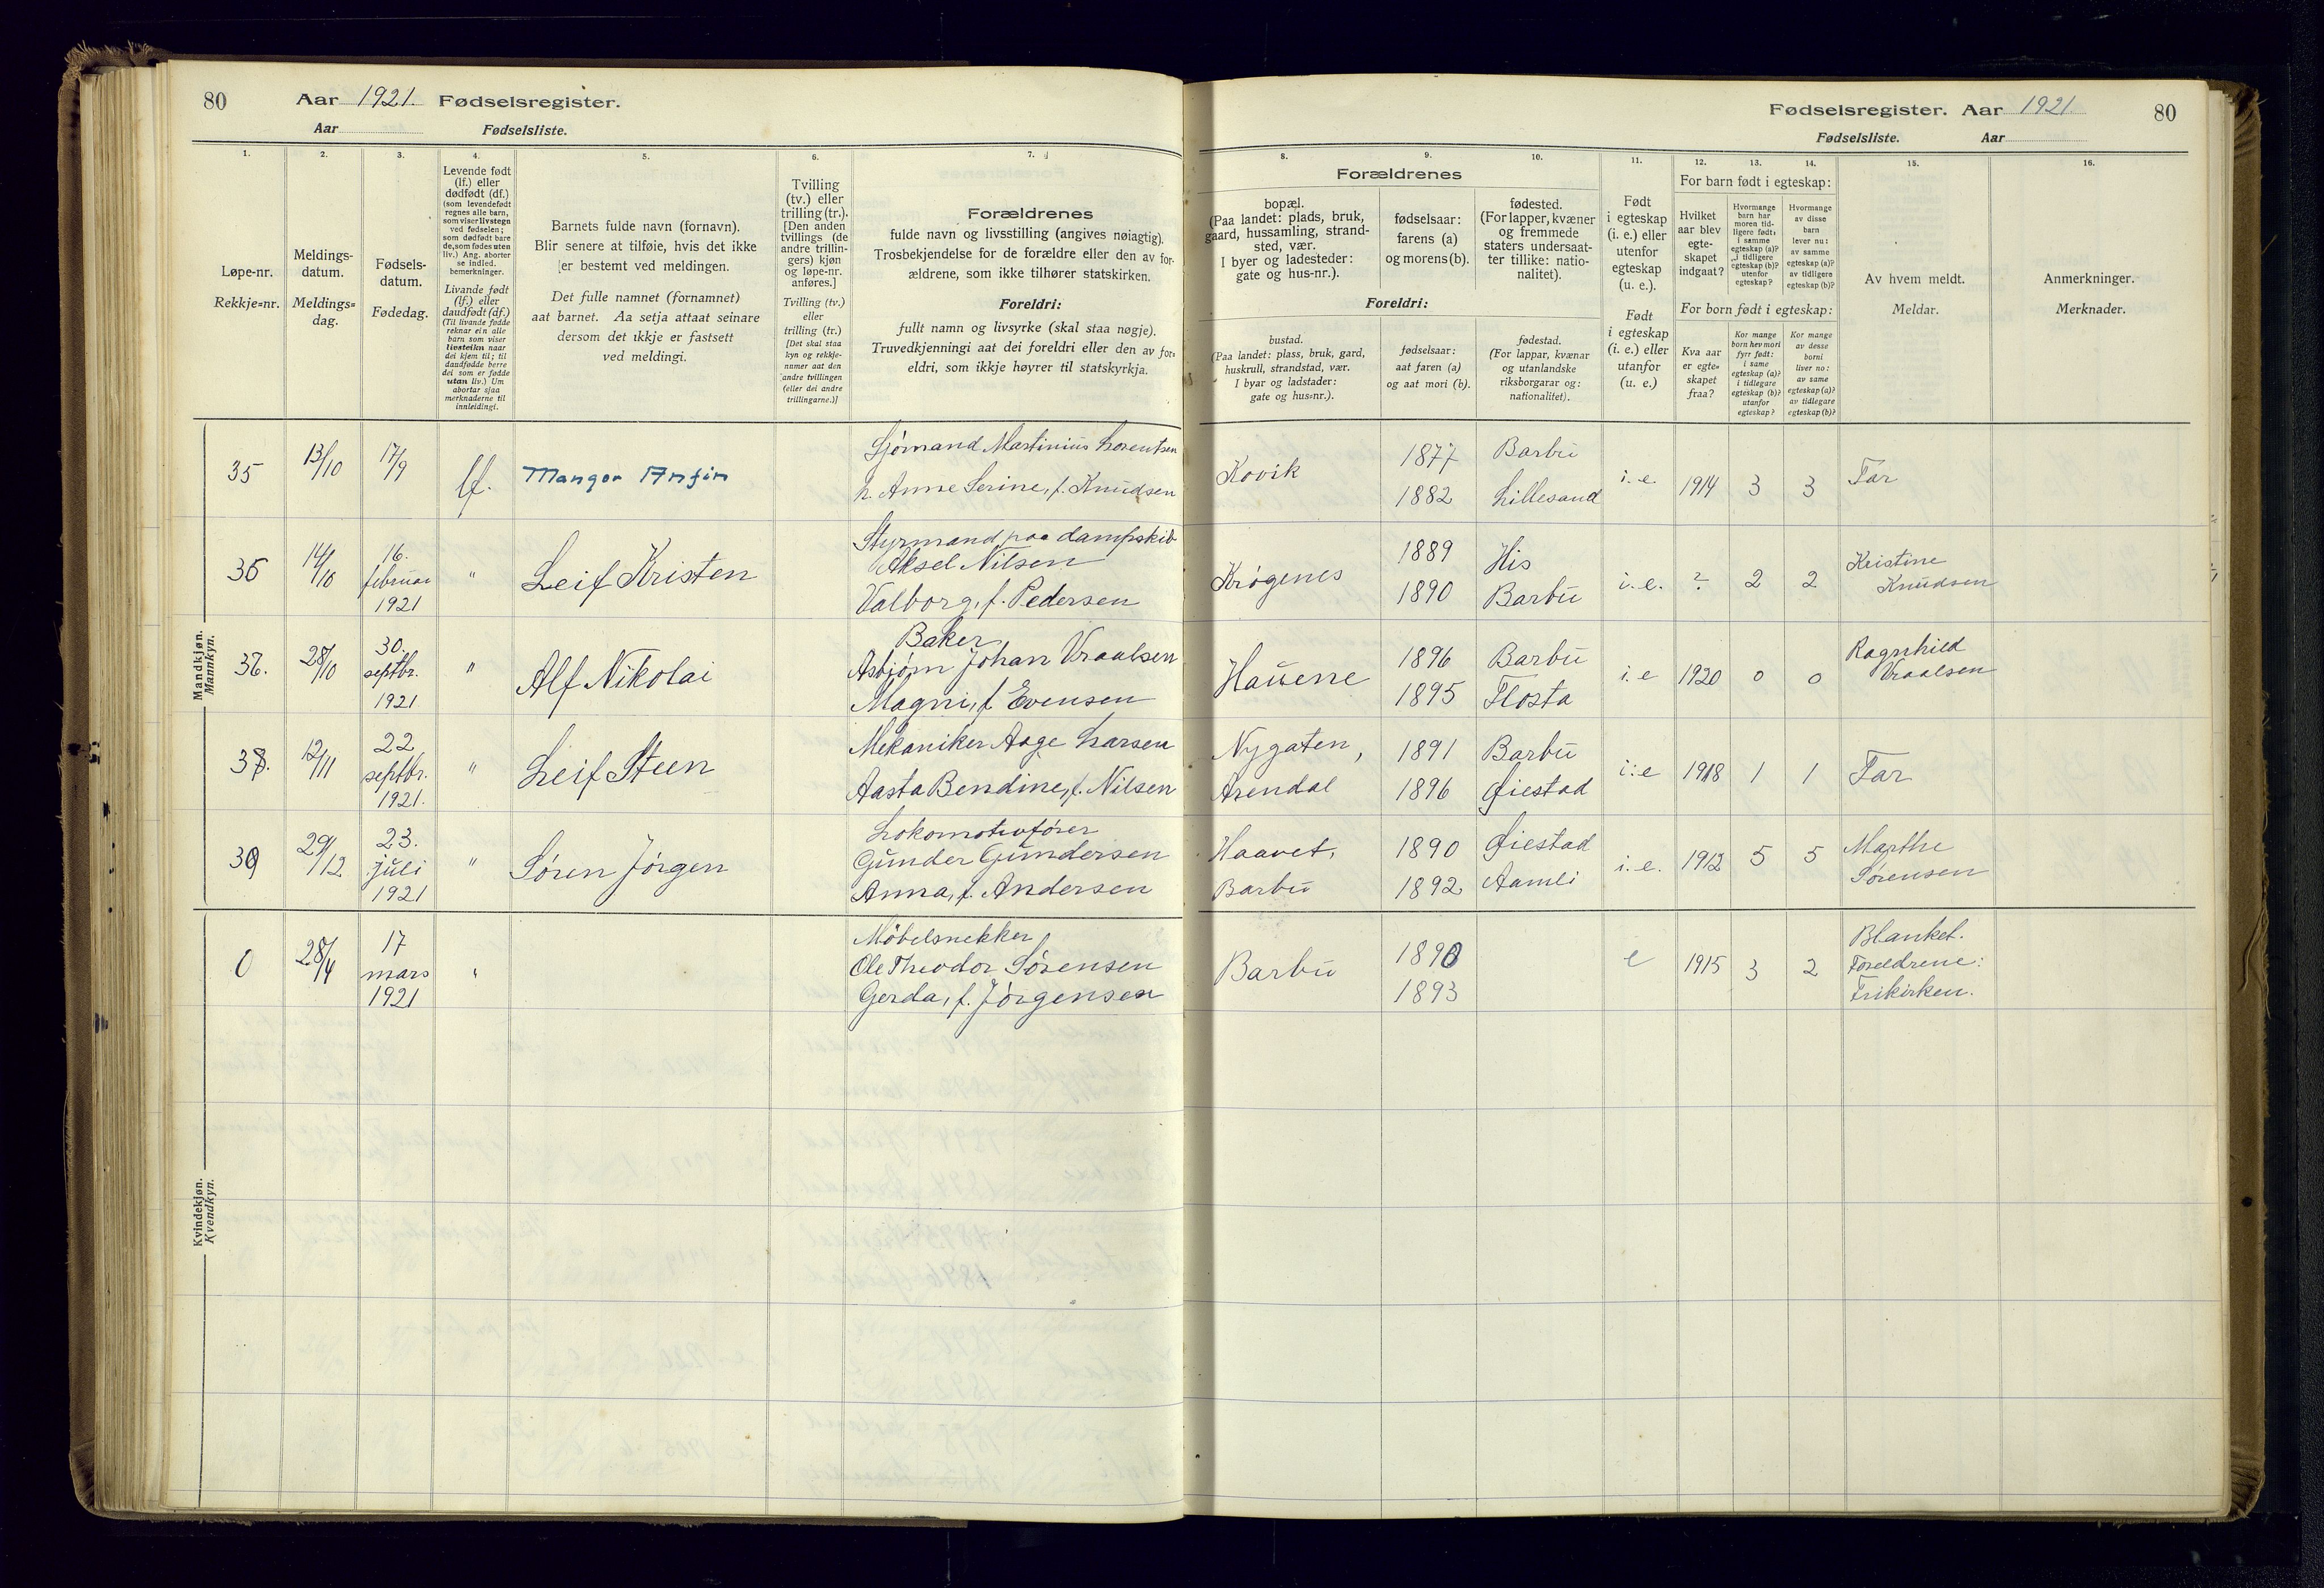 80 Aar 1921. Fødselsregister.
Aar Fødselsliste.
Fødselsregister. Aar 1921. 80
Fødselsliste. Aar
1. 2. 3. 4. 5. 6. 7. 8. 9. 10. 11. 12. 13. 14. 15. 16.
Løpe-nr.
Rekkje-nr.
Meldings-
datum.
Meldings-
dag.
Fødsels-
datum.
Fødedag.
Levende født
(lf.) eller
dødfødt (df.)
(som levendefødt
regnes alle barn,
som viser livstegn
ved fødselen;
som dødfødt bare
de, som fødes uten
liv.) Ang. aborter
se indled.
bemerkninger.
Livande født
(lf.) eller
daudfødt (df.)
(Til livande fødde
reknar ein alle
barn som viser
livsteikn naar
dei kjem til; til
daudfødde berre
dei som er fødde
utan liv.) Um
abortar sjaa
merknaderne til
innleidingi.
Barnets fulde navn (fornavn).
Blir senere at tilføie, hvis det ikke
er bestemt ved meldingen.
Det fulle namnet (fornamnet)
aat barnet. Aa setja attaat seinare
dersom det ikkje er fastsett
ved meldingi.
Tvilling
(tv.) eller
trilling (tr.).
[Den anden
tvillings (de
andre trillin-
gers) kjøn
og løpe-nr.
anføres.]
Tvilling (tv.)
eller
trilling (tr.)
[Det skal staa
kyn og rekkje-
numer aat den
andre tvillingen
(eller dei andre
trillingarne.)]
Forældrenes
fulde navn og livsstilling (angives nøiagtig).
Trosbekjendelse for de forældre eller den av for-
ældrene, som ikke tilhører statskirken.
Foreldri:
fullt namn og livsyrke (skal staa nøgje).
Truvedkjenningi aat dei foreldri eller den av for-
eldri, som ikkje høyrer til statskyrkja.
Forældrenes
bopæl.
(Paa landet: plads, bruk,
gaard, hussamling, strand-
sted, vær.
I byer og ladesteder:
gate og hus-nr.).
fødselsaar:
farens (a)
og morens (b).
fødested.
(For lapper, kvæner
og fremmede
staters undersaat-
ter tillike: natio-
nalitet).
Foreldri:
bustad.
(Paa landet: plass, bruk, gard,
huskrull, strandstad, vær.
I byar og ladstader:
gate og hus-nr.).
fødselsaar:
aat faren (a)
og aat mori (b).
fødestad.
(For lappar, kvænar
og utanlandske
riksborgarar og:
nationalitet).
Født
i egteskap
(i. e.) eller
utenfor
egteskap
(u. e.).
Født
i egteskap
(i. e.) eller
utanfor
(u. e.)
For barn født i egteskap:
Hvilket
aar blev
egte-
skapet
indgaat?
Hvormange
barn har
moren tid-
ligere født:
i samme
egteskap (a)?
i tidligere
egteskap (b)?
utenfor
egteskap?
Hvormange
av disse
barn
lever nu:
av samme
egteskap (a)?
av tidligere
egteskap (b)?
For born født i egteskap:
Kva aar
er egte-
skapet
fraa?
Kor mange
born hev mori
fyrr født:
i same
egteskap (a)?
i tidlegare
egteskap (b)?
utanfor
egteskap?
Kor mange
av desse
borni
liver no:
av same
egteskap (a)?
av tidlegare
egteskap (b)?
Av hvem meldt.
Meldar.
Anmerkninger.
Merknader.
Mandkjøn.
Mannkyn.
35 13/10 17/9 lf. Mangor Anfin
Sjømand Martinius Lorentsen
h. Anne Serine, f. Knudsen
Kovik 1877 Barbu
1882 Lillesand
i. e. 1914 3 3 Far
36 14/10 16. februar 1921 " Leif Kristen
Styrmand paa dampskib
Aksel Nilsen
Valborg, f. Pedersen
Krøgenes 1889 His
1890 Barbu
i. e. ? 2 2 Kristine
Knudsen
28/10 30. septbr. 1921 " Alf Nikolai
Baker
Asbjørn Johan Vraalsen
Magni, f. Evensen
Hauene 1896 Barbu
1895 Flosta
i. e 1920 0 0 Ragnhild
Vraalsen
12/11 22 septbr. 1921. " Leif Steen
Mekaniker Aage Larsen
Aasta Bendine, f. Nilsen
Nygaten, 1891 Barbu
Arendal 1896 Øiestad
i. e 1918 1 1 Far
39 29/12 23. juli 1921 " Søren Jørgen
Lokomotivfører
Gunder Gundersen
Anna, f. Andersen
Haavet, 1890 Øiestad
Barbu 1892 Aamli
i. e. 1912 5 5 Marthe
Sørensen
Kvindekjøn.
Kvendkyn.
0 28/4 17 mars 1921 "
Møbelsnekker
Ole Theodor Sørensen
Gerda, f. Jørgensen
Barbu 1890
1893
e 1915 3 2 Blanket.
Foreldrene:
Frikirken.